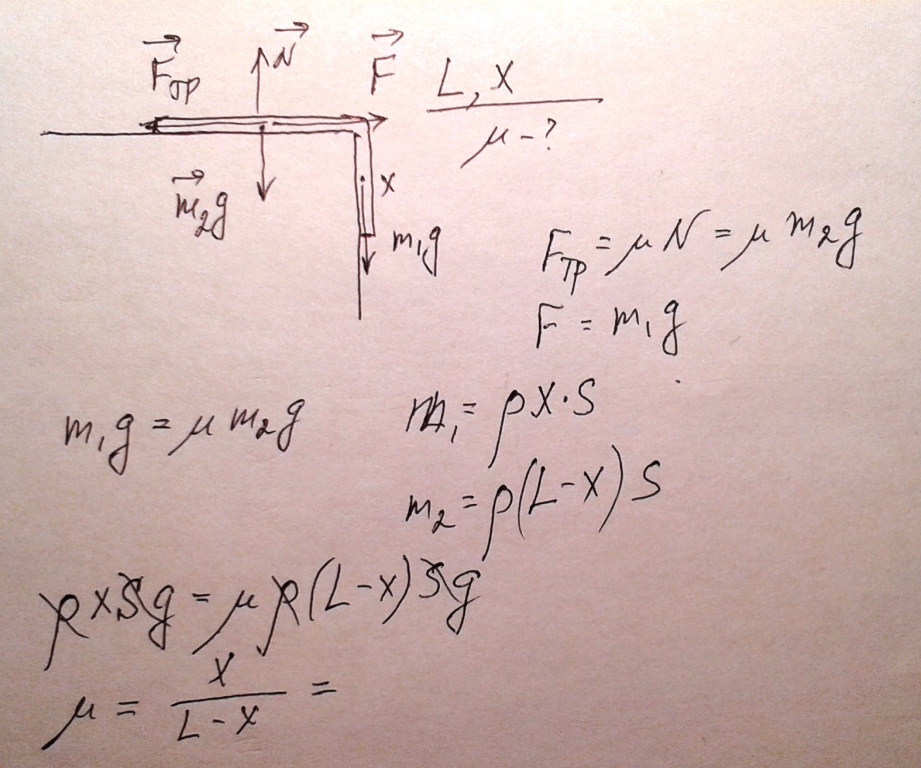 F⃗тр N⃗ F⃗ L, x
μ - ?
m⃗₂g x
m₁g
Fтр = μN = μm₂g
F = m₁g
m₁g = μm₂g m₁ = ρx·S
m₂ = ρ(L-x)S
ρxSg = μρ(L-x)Sg
μ = x/(L-x) =